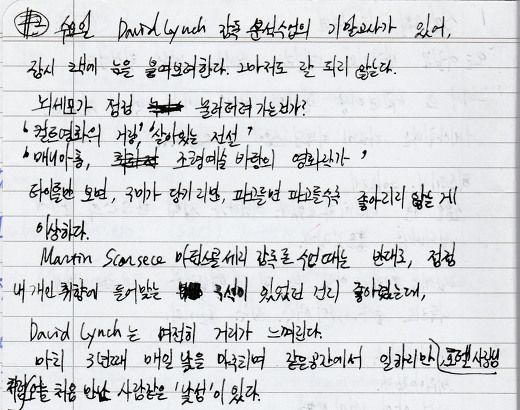 #2 수요일 David Lynch 감독 분석수업의 기말고사가 있어,
잠시 책에 눈을 붙여보려한다. 그마저도 잘 되리 않는다.
뇌세포가 점점 물러터려가는건가?
'컬트영화의 거장,' '살아있는 전설'
'매니아층, 조형예술 바탕의 영화작가'
타이틀만 보면, 구미가 당기리만, 파고들면 파고들수록 좋아리리 않는 게
이상하다.
Martin Scorsece 마틴스콜세리 감독론 수업때는 반대로, 점점
내 개인 취향에 들어맞는 구석이 있었던 건리 좋아졌는데,
David Lynch는 여전히 거리가 느껴린다.
마치 3년째 매일 낯을 마주치며 같은공간에서 일하리만, 호텔 사장님
처럼, 오늘 처음 만난 사람같은 '낯섬'이 있다.